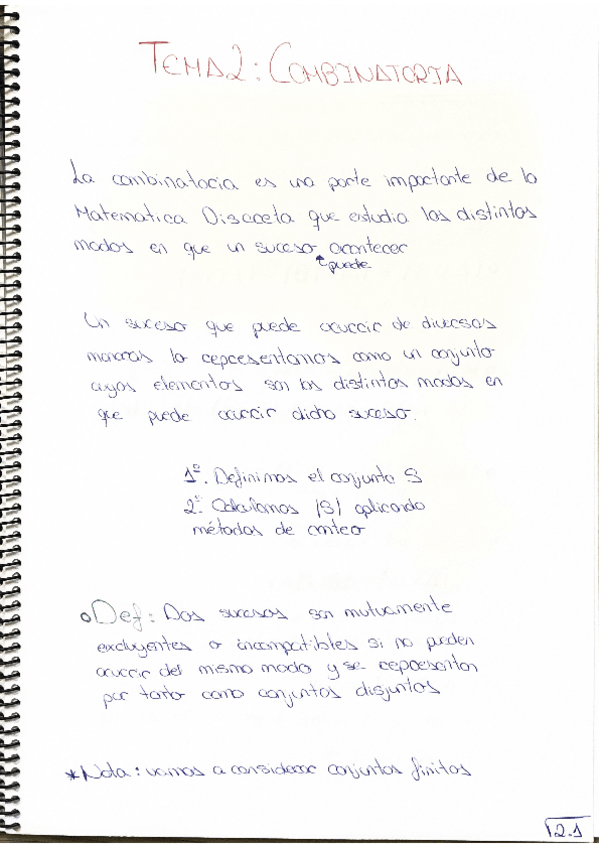 TEMA 2: COMBINATORIA
La combinatoria es una parte importante de la
Matemática Discreta que estudia los distintos
modos en que un suceso acontecer
puede
Un suceso que puede ocurrir de diversas
maneras lo representamos como un conjunto
cuyos elementos son los distintos modos en
que puede ocurrir dicho suceso.
1º. Definimos el conjunto S
2º. Calculamos |S| aplicando
métodos de conteo
Def: Dos sucesos son mutuamente
excluyentes o incompatibles si no pueden
ocurrir del mismo modo y se representan
por tanto como conjuntos disjuntos
*Nota: vamos a considerar conjuntos finitos
2.1